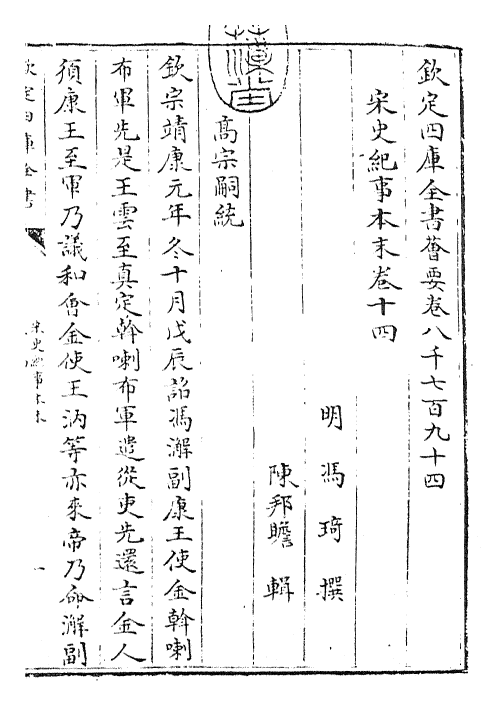 欽定四庫全書薈要卷八千七百九十四
宋史紀事本末卷十四
明馮琦撰
陳邦瞻輯
高宗嗣統
欽宗靖康元年冬十月戊辰詔馮澥副康王使金斡喇
布軍先是王雲至真定斡喇布軍遣從吏先還言金人
須康王至軍乃議和會金使王汭等亦來帝乃命澥副
欽定四庫全書
宋史紀事本末
一